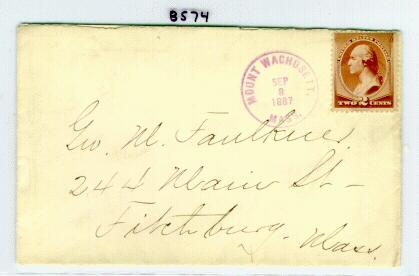 B574
MOUNT WACHUSETT,
SEP
8
1887
MASS.
UNITED STATES POSTAGE
TWO 2 CENTS
Geo. M. Faulkner.
244 Main St –
Fitchburg. Mass.